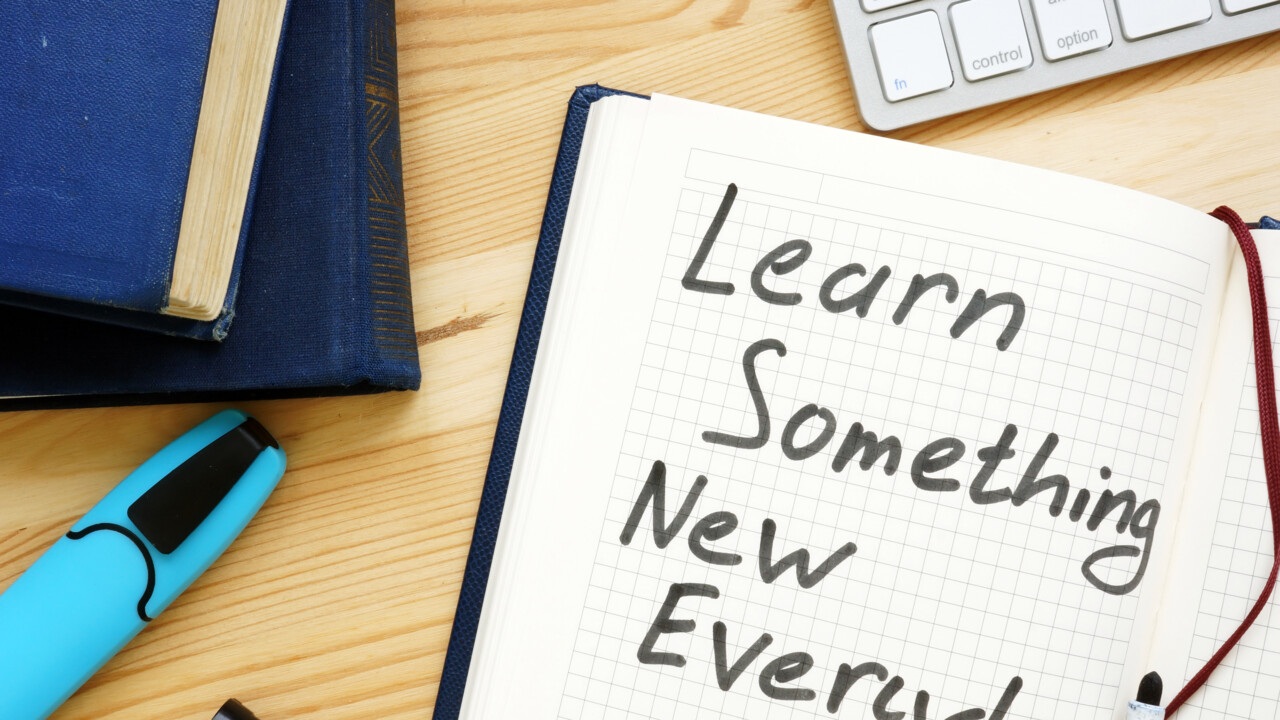 fn
control
option
Learn
Something
New
Every